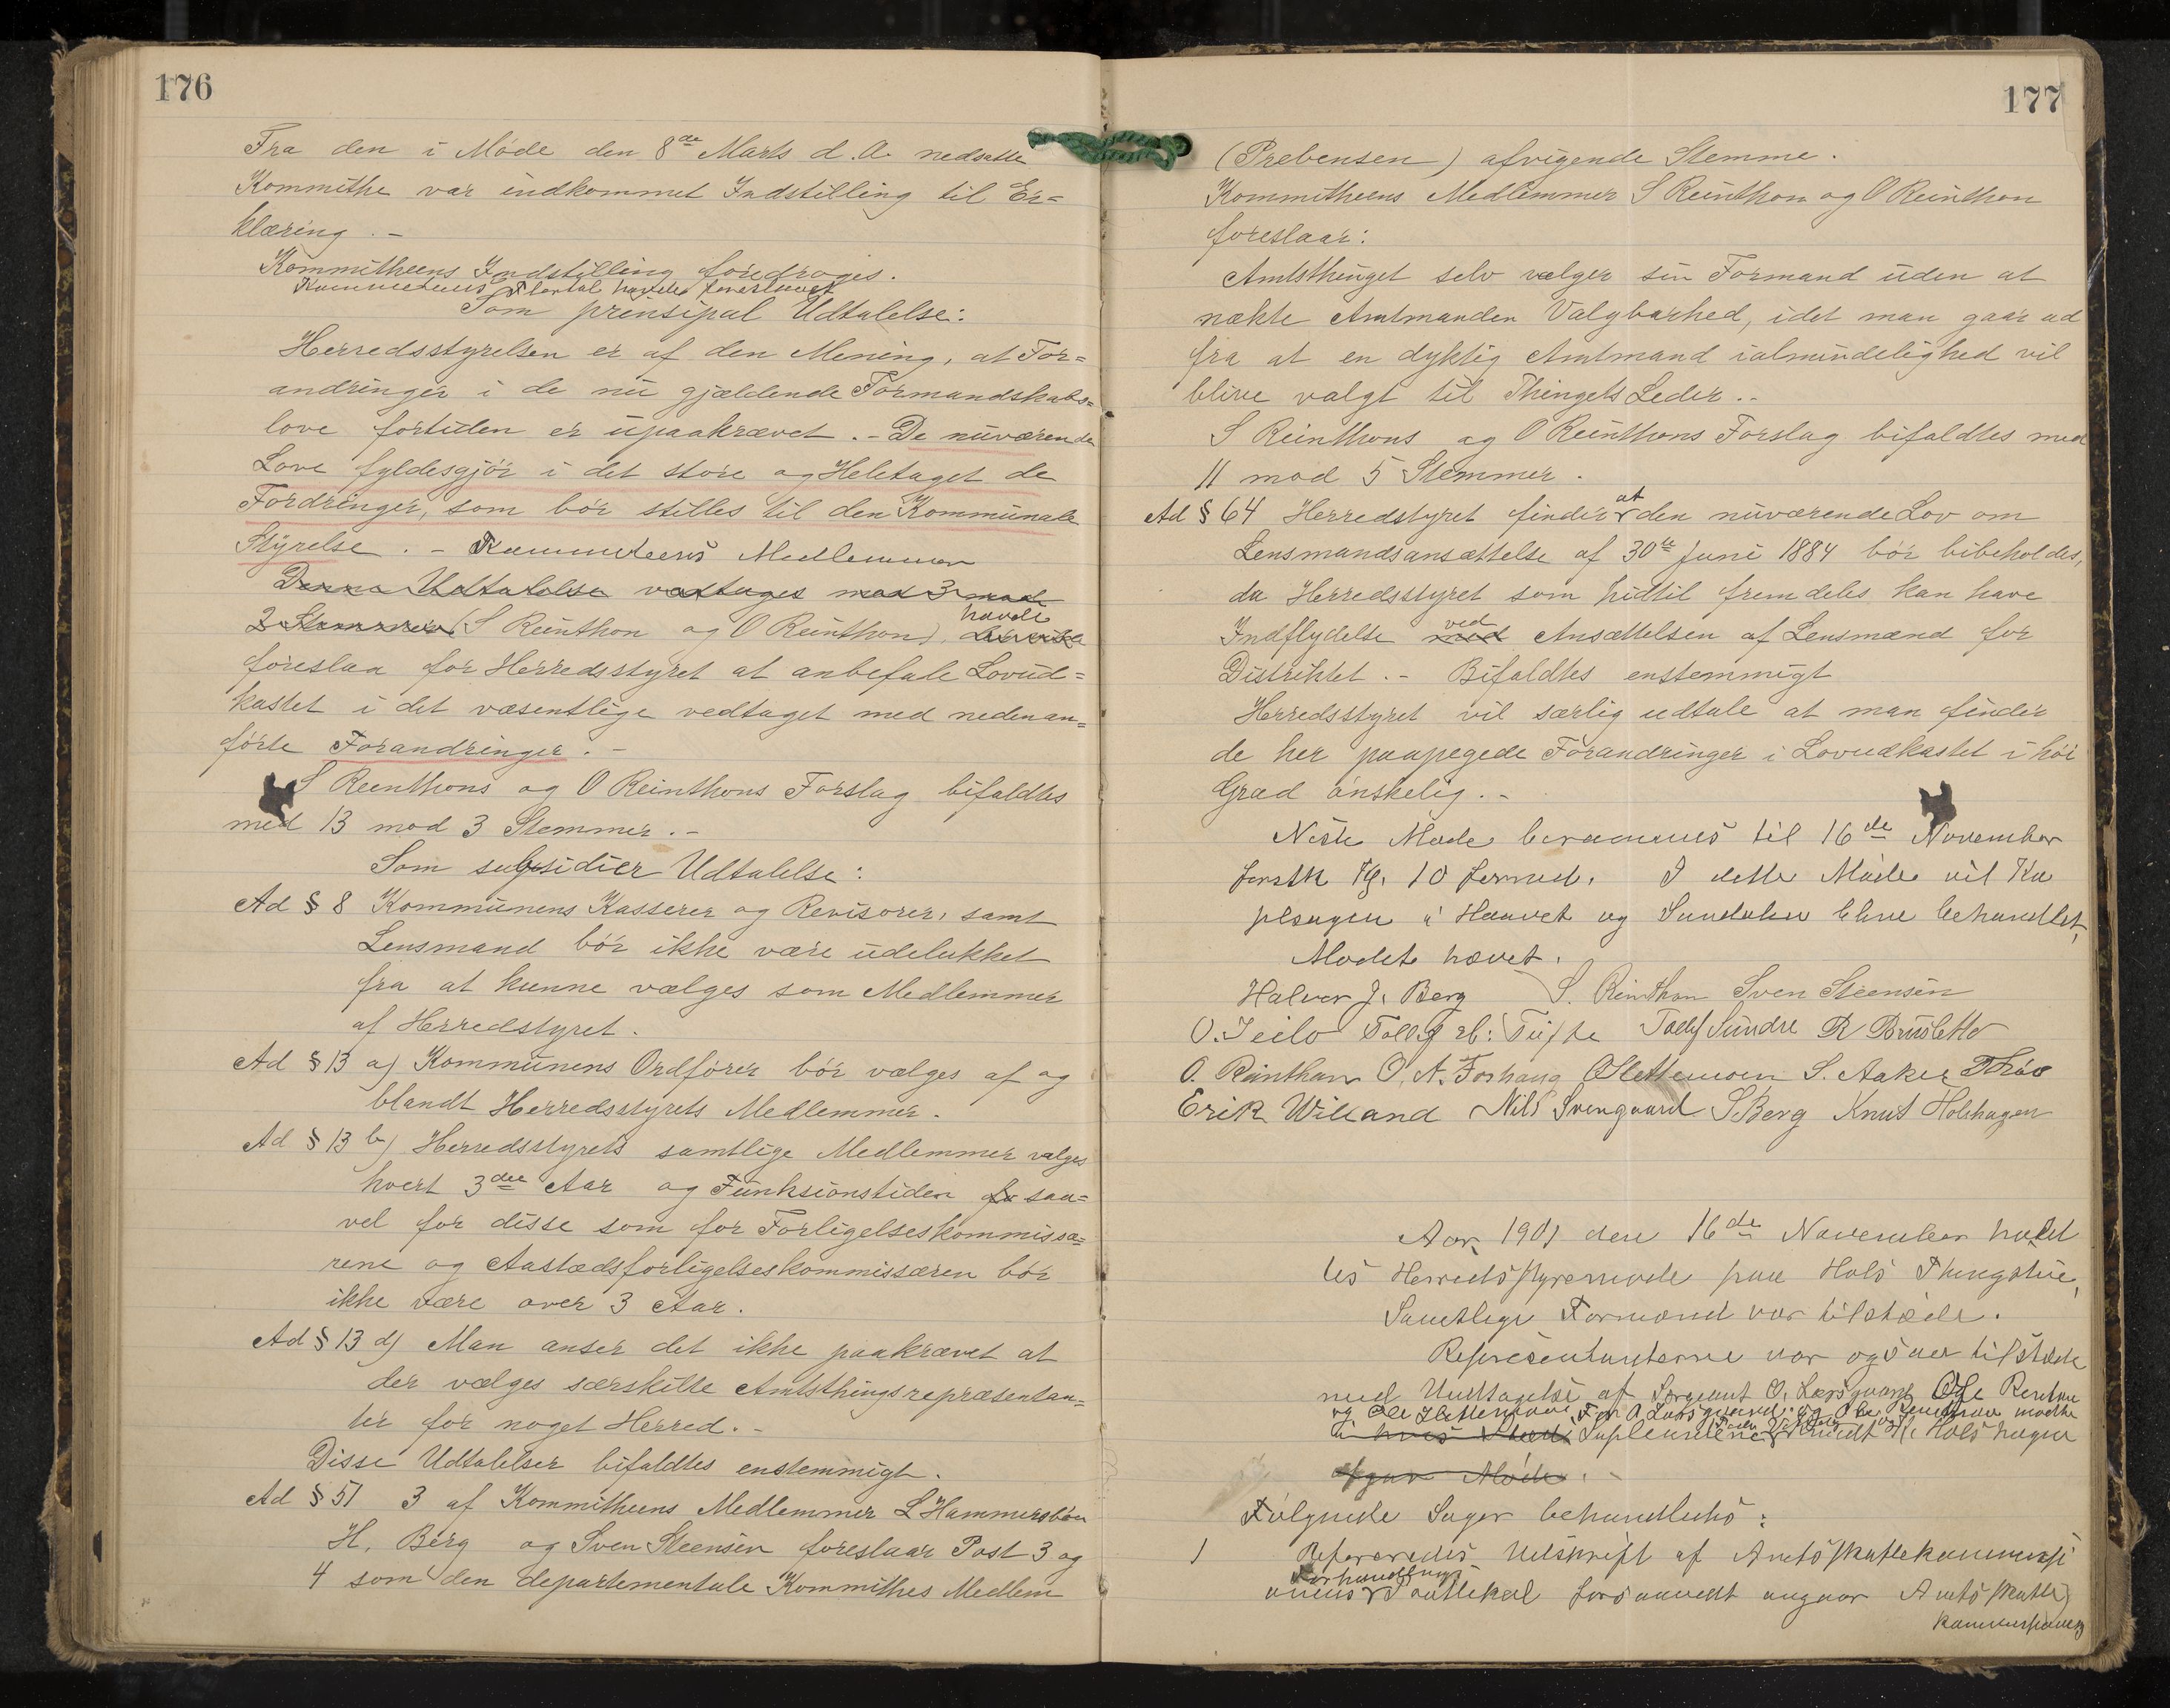 176
Fra den i Møde den 8de Marts d. A. nedsatte
Kommithe var indkommet Indstilling til Er=
klæring. -
Kommitheens Indstilling foredroges.
Flertal havde foreslaaet
Som prinsipal Udtalelse:
Herredsstyrelsen er af den Mening, at For=
andringer i de nu gjældende Formandskabs=
love fortiden er upaakrævet. - De nuværende
Love fyldesgjør i det store og Heletaget de
Fordringer, som bør stilles til den Kommunale
Styrelse. - Kommiteens Medlemmer
Denne Udtalelse vedtages med 3 mod
2 Stemmer (S Reinthon og O Reinthon), havde
foreslaa for Herredsstyret at anbefale Lovud=
kastet i det væsentlige vedtaget med nedenan=
førte Forandringer. -
S Reinthons og O Reinthons Forslag bifaldtes
med 13 mod 3 Stemmer. -
Som subsidiær Udtalelse:
Ad § 8 Kommunens Kasserer og Revisorer, samt
Lensmand bør ikke være udelukket
fra at kunne vælges som Medlemmer
af Herredstyret.
Ad § 13 a) Kommunens Ordfører bør vælges af og
blandt Herredsstyrets Medlemmer.
Ad § 13 b) Herredsstyrets samtlige Medlemmer vælges
hvert 3die Aar og Funksionstiden fo saa=
vel for disse som for Forligelseskommissæ=
rene og Aastædsforligelseskommissæren bør
ikke være over 3 Aar.
Ad § 13 d) Man anser det ikke paakrævet at
der vælges særskilte Amtsthingsrepræsentan=
ter for noget Herred. -
Disse Udtalelser bifaldtes enstemmigt.
Ad § 51 3 af Kommitheens Medlemmer L Hammersbøen
H. Berg og Sven Steensen foreslaar Post 3 og
4 som den departementale Kommithes Medlem
177
(Prebensen) afvigende Stemme.
Kommitheens Medlemmer S Reinthon og O Reinthon
foreslaar:
Amtsthinget selv vælger sin Formand uden at
nækte Amtmanden Valgbarhed, idet man gaar ud
fra at en dyktig Amtmand ialmindelighed vil
blive valgt til Thingets Leder. -
S Reinthons og O Reinthons Forslag bifaldtes med
11 mod 5 Stemmer.
Ad § 64 Herredstyret finder at den nuværende Lov om
Lensmandsansættelse af 30te Juni 1884 bør bibeholdes,
da Herredsstyret som hidtil fremdeles kan have
Indflydelse med ved Ansættelsen af Lensmænd for
Distriktet. - Bifaldtes enstemmigt
Herredsstyret vil særlig udtale at man finder
de her paapegede Forandringer i Lovudkastet i høi
Grad ønskelig. -
Neste Møde berammes til 16de November
førstk Kl. 10 formd. I dette Møde vil Ka
pelsagen i Hovet og Sundalen blive behandlet,
Mødet hævet.
Halvor J. Berg S. Reinthon Sven Steensen
O. Jeilo Tollef Sundre R Brusletto
O. Reinthon O. A. Forhaug O Slettemoen S. Aaker
Erik Willand Nils Svengaard S Berg Knut Holshagen
Aar 1901 den 16de November holdt
tes Herredsstyremøde paa Hols Thingstue,
Samtlige Formænd var tilstæde.
Representanterne var ogsaa tilstæde
med Undtagelse af Sergeant O. Larsgaard, Ole Reinton
og Ole Slettemoen. For O Larsgaard og Ole Reinton mødte
Suplenterne Knudt K. Holshagen
Møde. -
Følgende Sager behandledes:
1 Refereredes Udskrift af Amtsskattekommissi
onens Forhandlings Protokol forsaavidt angaar Amtsskatte
kommissionens